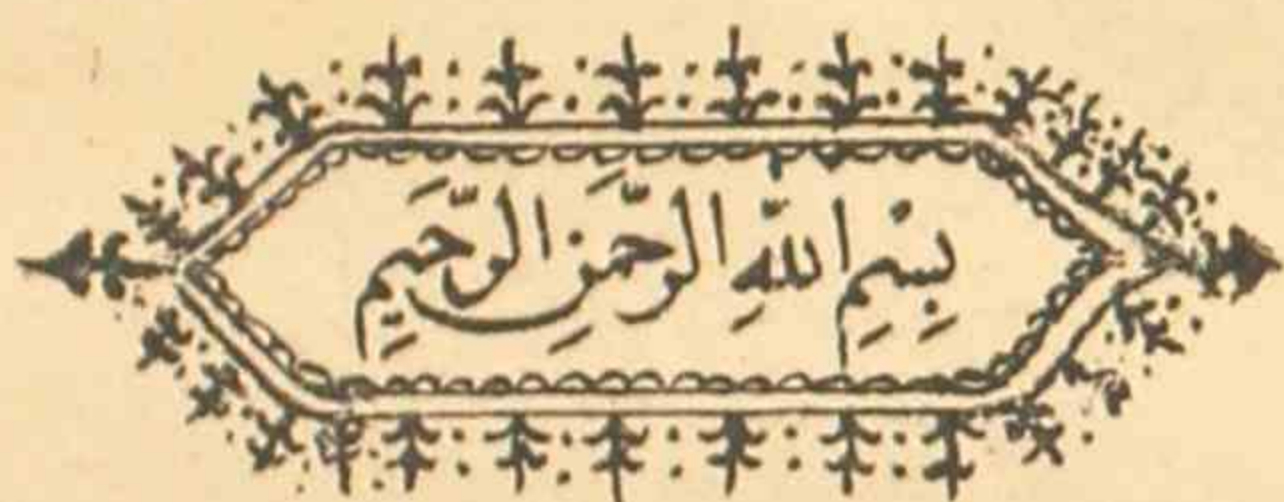 بِسْمِ اللّهِ الرَّحْمَنِ الرَّحِيمِ